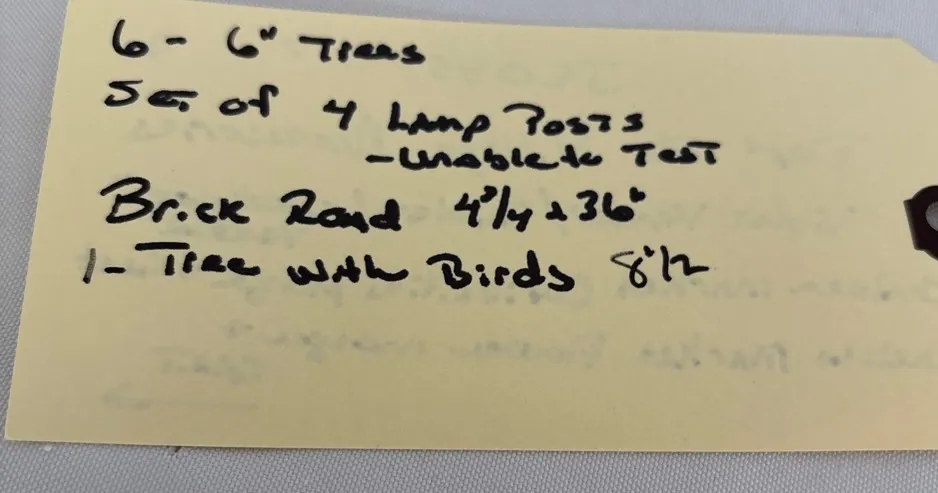 6 - 6" Trees
Set of 4 Lamp Posts
- unable to Test
Brick Road 4 3/4 x 36"
1 - Tree with Birds 8 1/2